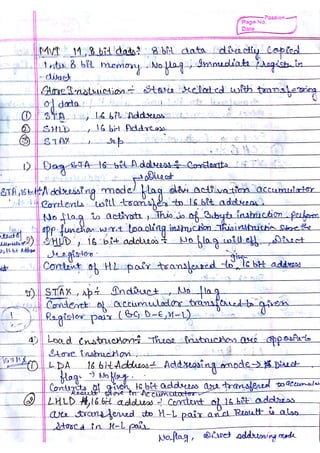 Page No.
Date
MVI M, 8 bit data? 8 bit data directly Copied
Into 8 bit memory. No flag, Immediate / register in
-direct
Store Instruction:- Store related with transfering
of data:
① STA , 16 bit Address
② SHLD , 16 bit Address
③ STAX , rp
1) STA 16 bit Address:- Contents
Direct
Addressing mode flag activation accumulator
Contents will transfer to 16 bit address.
No flag is activate, This is of 3 byte instruction, perform
opp. function w.r.t loading instruction This instruction Store the
2) SHLD, 16 bit address:- No flag will eff, Direct
Register
given
Content of HL pair transfered to 16 bit address
3) STAX, rp:- Indirect, No flag
Content of accumulator transfered to given
Register pair (B-C, D-E, H-L)
4) Load Instructions:- These instruction are opposite to
Store instruction.
① LDA 16 bit Address:- Addressing mode → Direct
flag:- No flag.
Contents of given 16 bit address are transfered to accumula
Result store in Accumulator
② LHLD 16 bit address:- Content of 16 bit address
are transfered to H-L pair and Result is also
stored in H-L pair.
No flag, Direct addressing mode